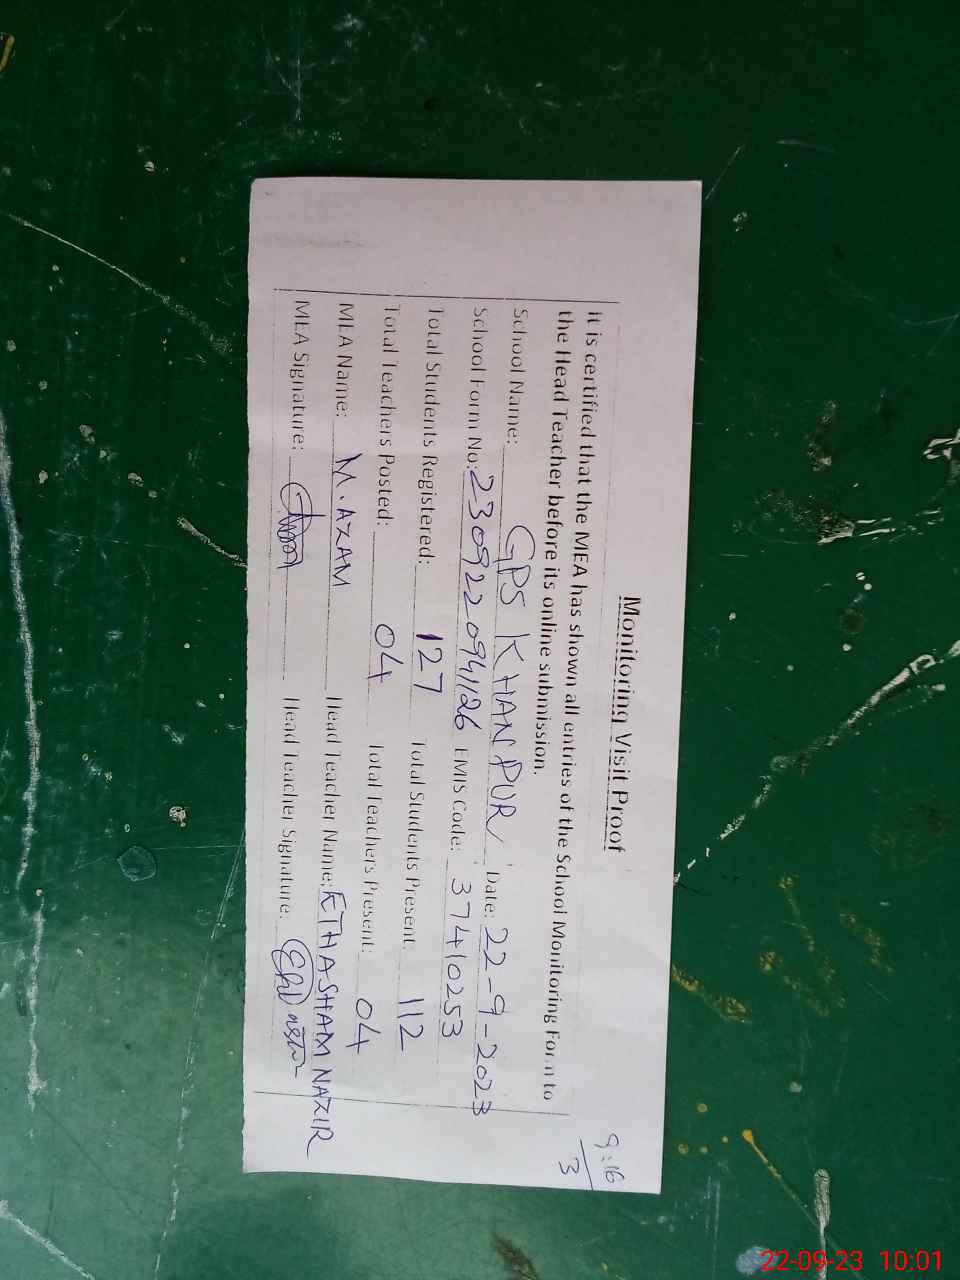 9:16
3
Monitoring Visit Proof
It is certified that the MEA has shown all entries of the School Monitoring Form to
the Head Teacher before its online submission.
School Name: GPS KHANPUR Date: 22-9-2023
School Form No: 230922094126 EMIS Code: 37410253
Total Students Registered: 127 Total Students Present: 112
Total Teachers Posted: 04 Total Teachers Present: 04
MEA Name: M.AZAM Head Teacher Name: ETHASHAM NAZIR
MEA Signature: Head Teacher Signature:
22-09-23 10:01